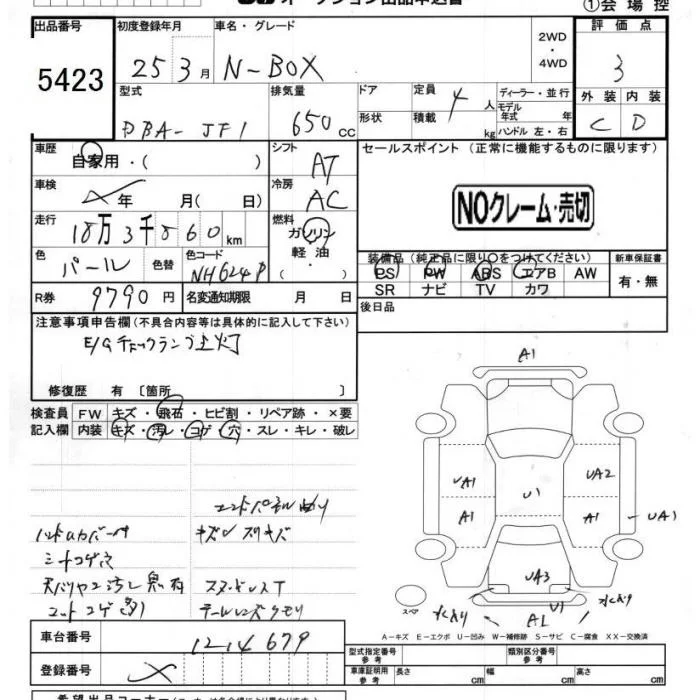 オークション出品申込書
①会場控
出品番号 初度登録年月 車名・グレード 2WD・4WD 評価点
5423 25 3月 N-BOX 3
型式 排気量 ドア 定員 ディーラー・並行 外装 内装
DBA-JF1 650cc 形状 積載 4人 kg モデル年式 年 ハンドル 左・右 C D
車歴 自家用・( ) シフト AT セールスポイント(正常に機能するものに限ります)
車検 メ 年 月( 日) 冷房 AC
NOクレーム・売切
走行 18万3千860km 燃料 ガソリン 軽油・( )
色 パール 色替 色コード NH624P
装備品(純正品に限り○をつけてください) 新車保証書
PS PW ABS エアB AW 有・無
SR ナビ TV カワ
R券 9790円 名変通知期限 月 日
後日品
注意事項申告欄(不具合内容等は具体的に記入して下さい)
E/Gチェックランプ点灯
修復歴 有 [箇所 ]
検査員 FW キズ・飛石・ヒビ割・リペア跡・×要
記入欄 内装 キズ・汚レ・コゲ・穴・スレ・キレ・破レ
A1
UA1 U1 UA2
A1 A1 UA1
UA3
U1
A1
スペア
シートコゲ穴
テールレンズクモリ
A−キズ E−エクボ U−凹み W−補修跡 S−サビ C−腐食 XX−交換済
車台番号 1214679
登録番号 メ
型式指定番号 参考 類別区分番号 参考
車庫証明用 参考 長さ cm 幅 cm 高さ cm
希望出品コーナー